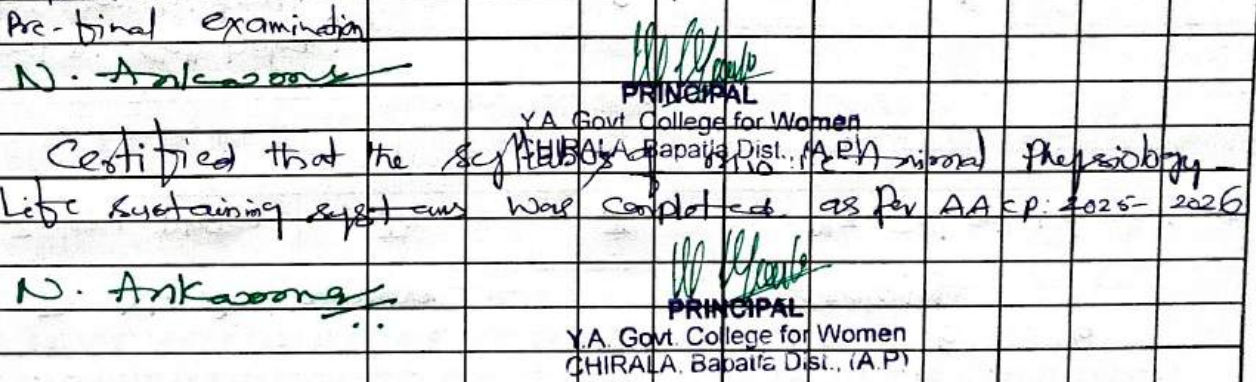 Pre-final examination
N. Ankarao
PRINCIPAL
Y.A. Govt. College for Women
CHIRALA, Bapatla Dist., (A.P)
Certified that the syllabus of Animal Physiology-
Life sustaining systems was completed as per AACP: 2025-2026
N. Ankarao
PRINCIPAL
Y.A. Govt. College for Women
CHIRALA, Bapatla Dist., (A.P)